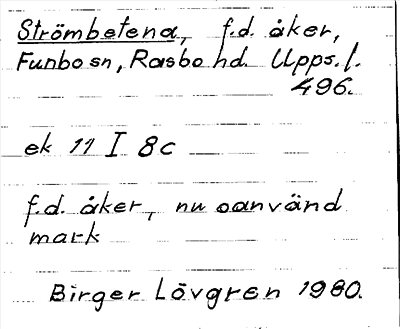 Strömbetena, f.d. åker,
Funbo sn, Rasbo hd. Upps. l.
496.
ek 11 I 8c
f.d. åker, nu oanvänd
mark
Birger Lövgren 1980.